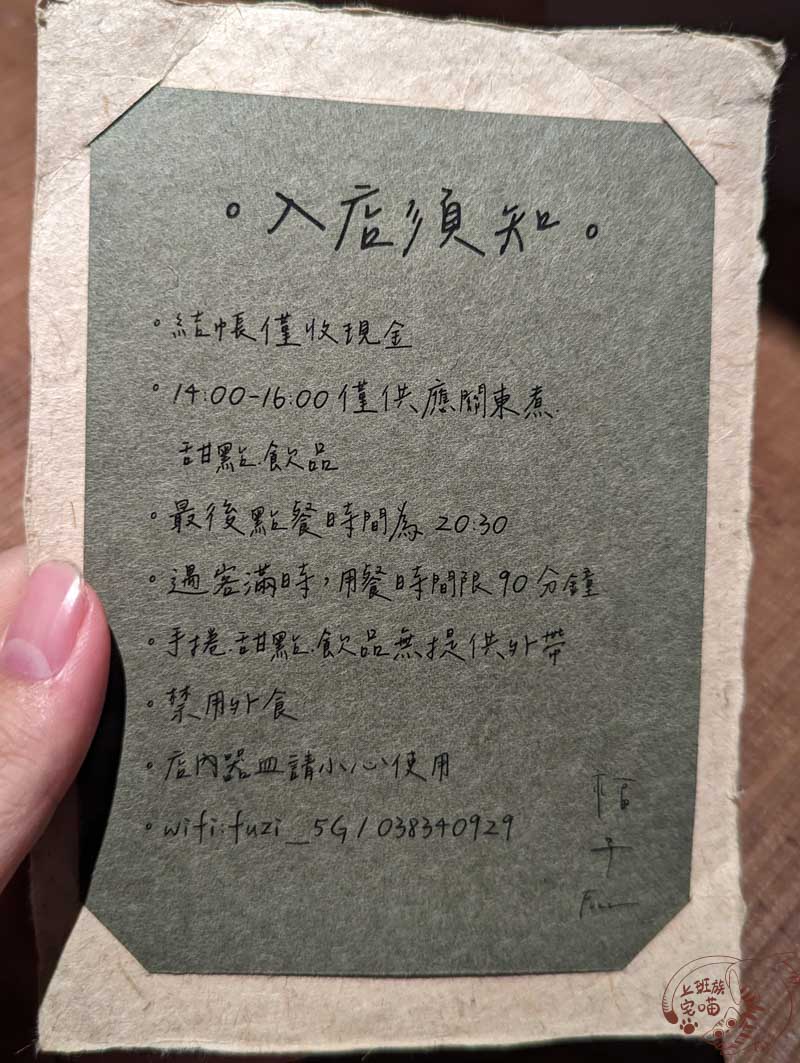 。入店須知。
。結帳僅收現金
。14:00-16:00 僅供應關東煮.
甜點.飲品
。最後點餐時間為 20:30
。遇客滿時，用餐時間限90分鐘
。手捲.甜點.飲品無提供外帶
。禁用外食
。店內器皿請小心使用
。wifi:fuzi_5G / 038340929
上班族
宅喵